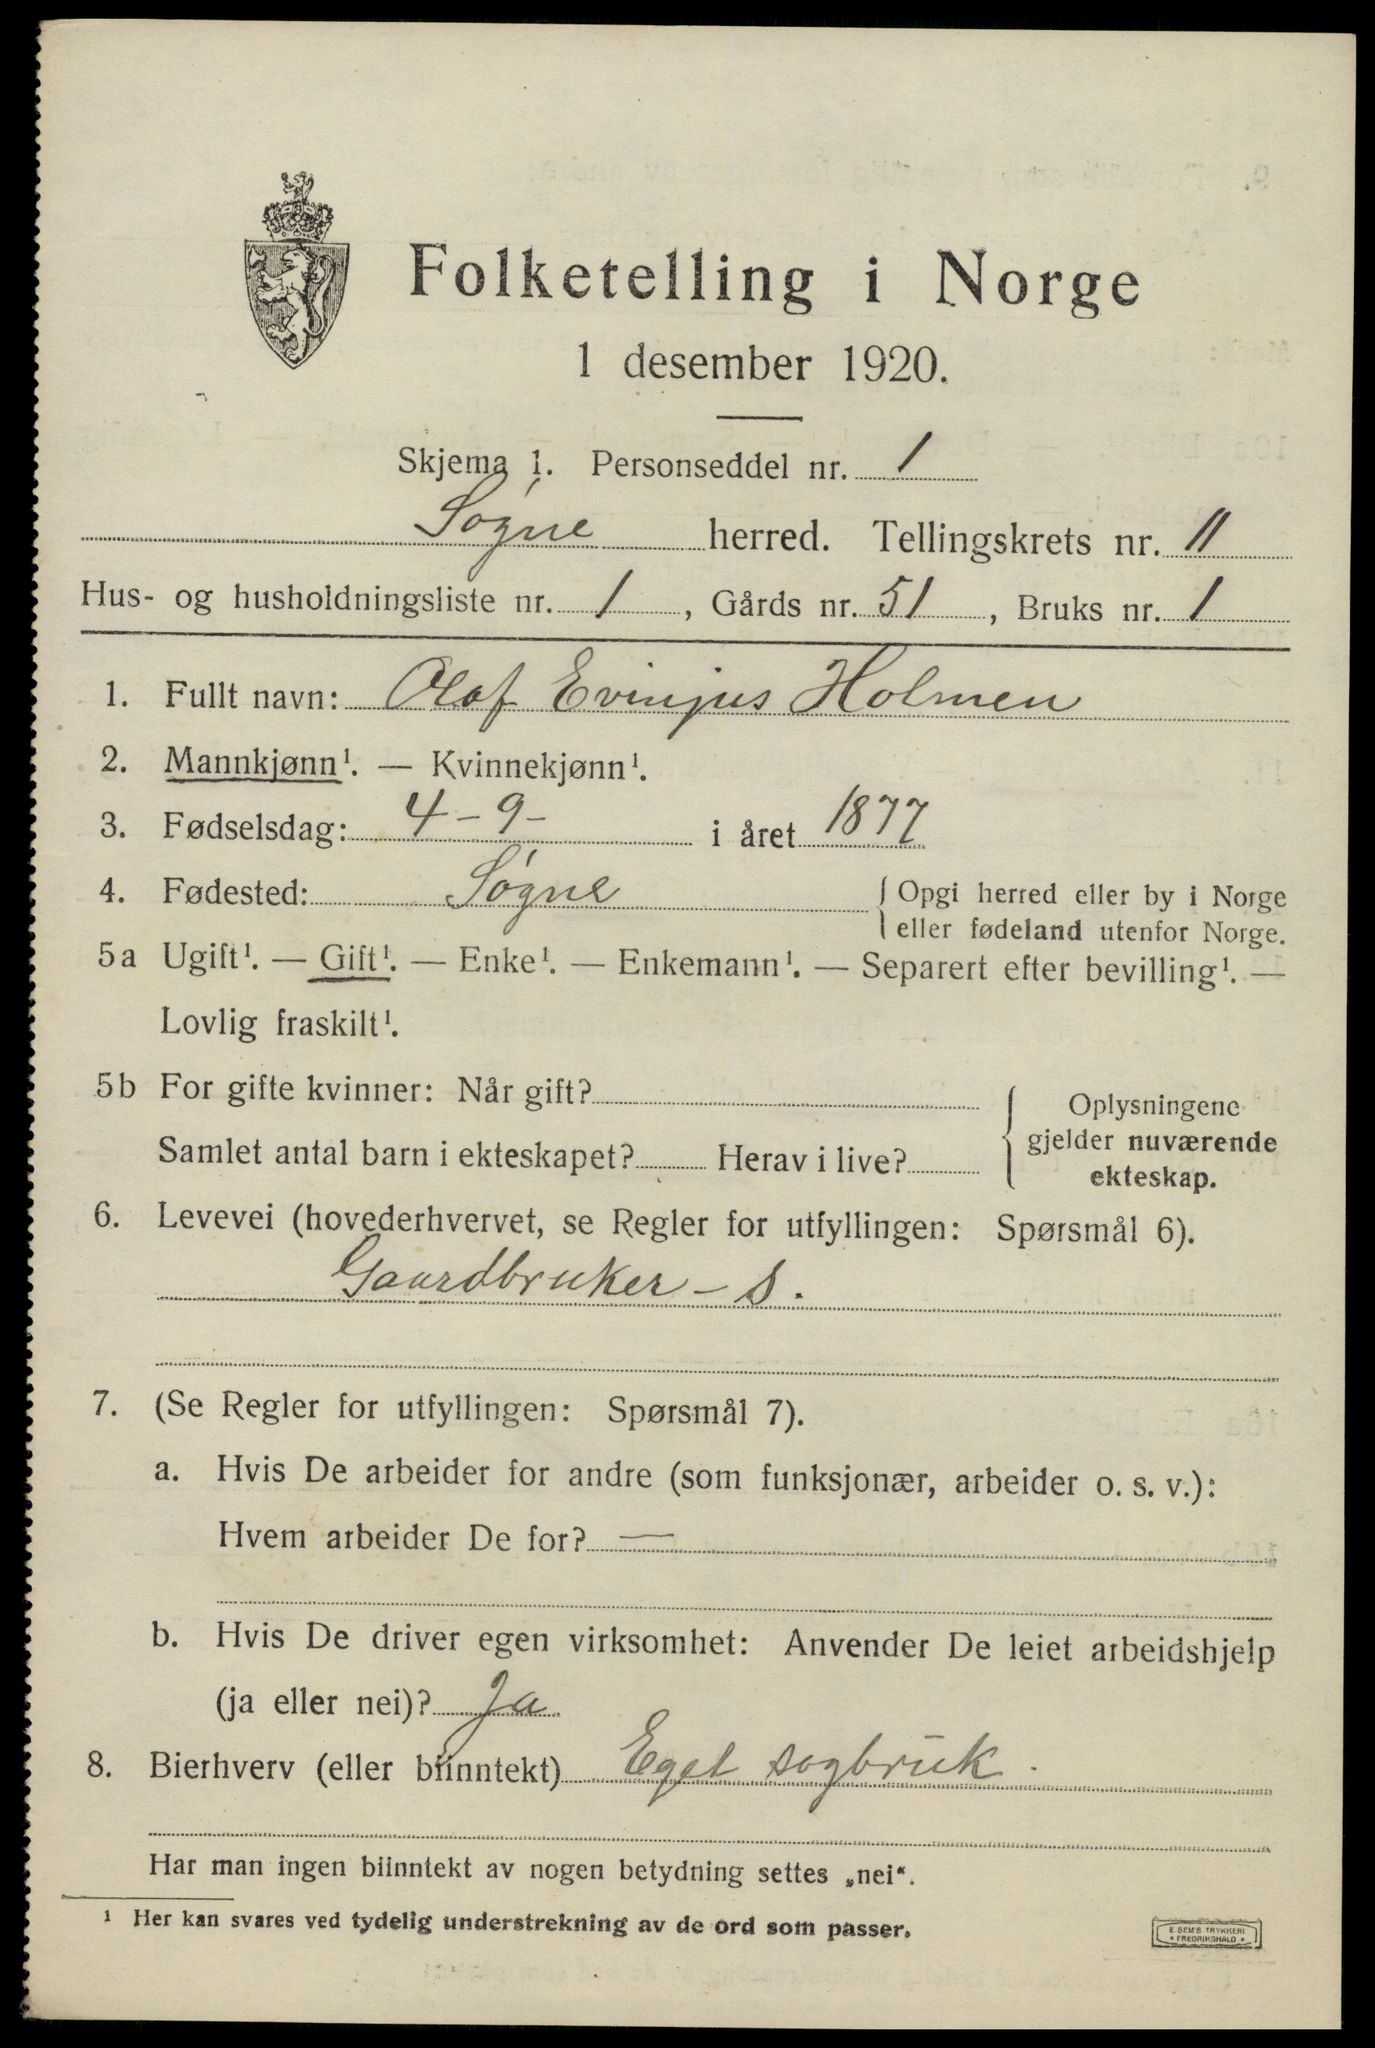 Folketelling i Norge
1 desember 1920.
Skjema 1. Personseddel nr. 1
Søgne herred. Tellingskrets nr. 11
Hus- og husholdningsliste nr. 1, Gårds nr. 51, Bruks nr. 1
1. Fullt navn: Olaf Evinjus Holmen
2. Mannkjønn¹. — Kvinnekjønn¹.
3. Fødselsdag: 4-9- i året 1877
4. Fødested: Søgne { Opgi herred eller by i Norge
eller fødeland utenfor Norge.
5a Ugift¹. — Gift¹. — Enke¹. — Enkemann¹. — Separert efter bevilling¹. —
Lovlig fraskilt¹.
5b For gifte kvinner: Når gift?
Samlet antal barn i ekteskapet? Herav i live?
{ Oplysningene
gjelder nuværende
ekteskap.
6. Levevei (hovederhvervet, se Regler for utfyllingen: Spørsmål 6).
Gaardbruker - s.
7. (Se Regler for utfyllingen: Spørsmål 7).
a. Hvis De arbeider for andre (som funksjonær, arbeider o. s. v.):
Hvem arbeider De for? —
b. Hvis De driver egen virksomhet: Anvender De leiet arbeidshjelp
(ja eller nei)? Ja
8. Bierhverv (eller biinntekt) Eget sagbruk.
Har man ingen biinntekt av nogen betydning settes „nei“.
¹ Her kan svares ved tydelig understrekning av de ord som passer.
E SEM'S TRYKKERI
• FREDRIKSHALD •